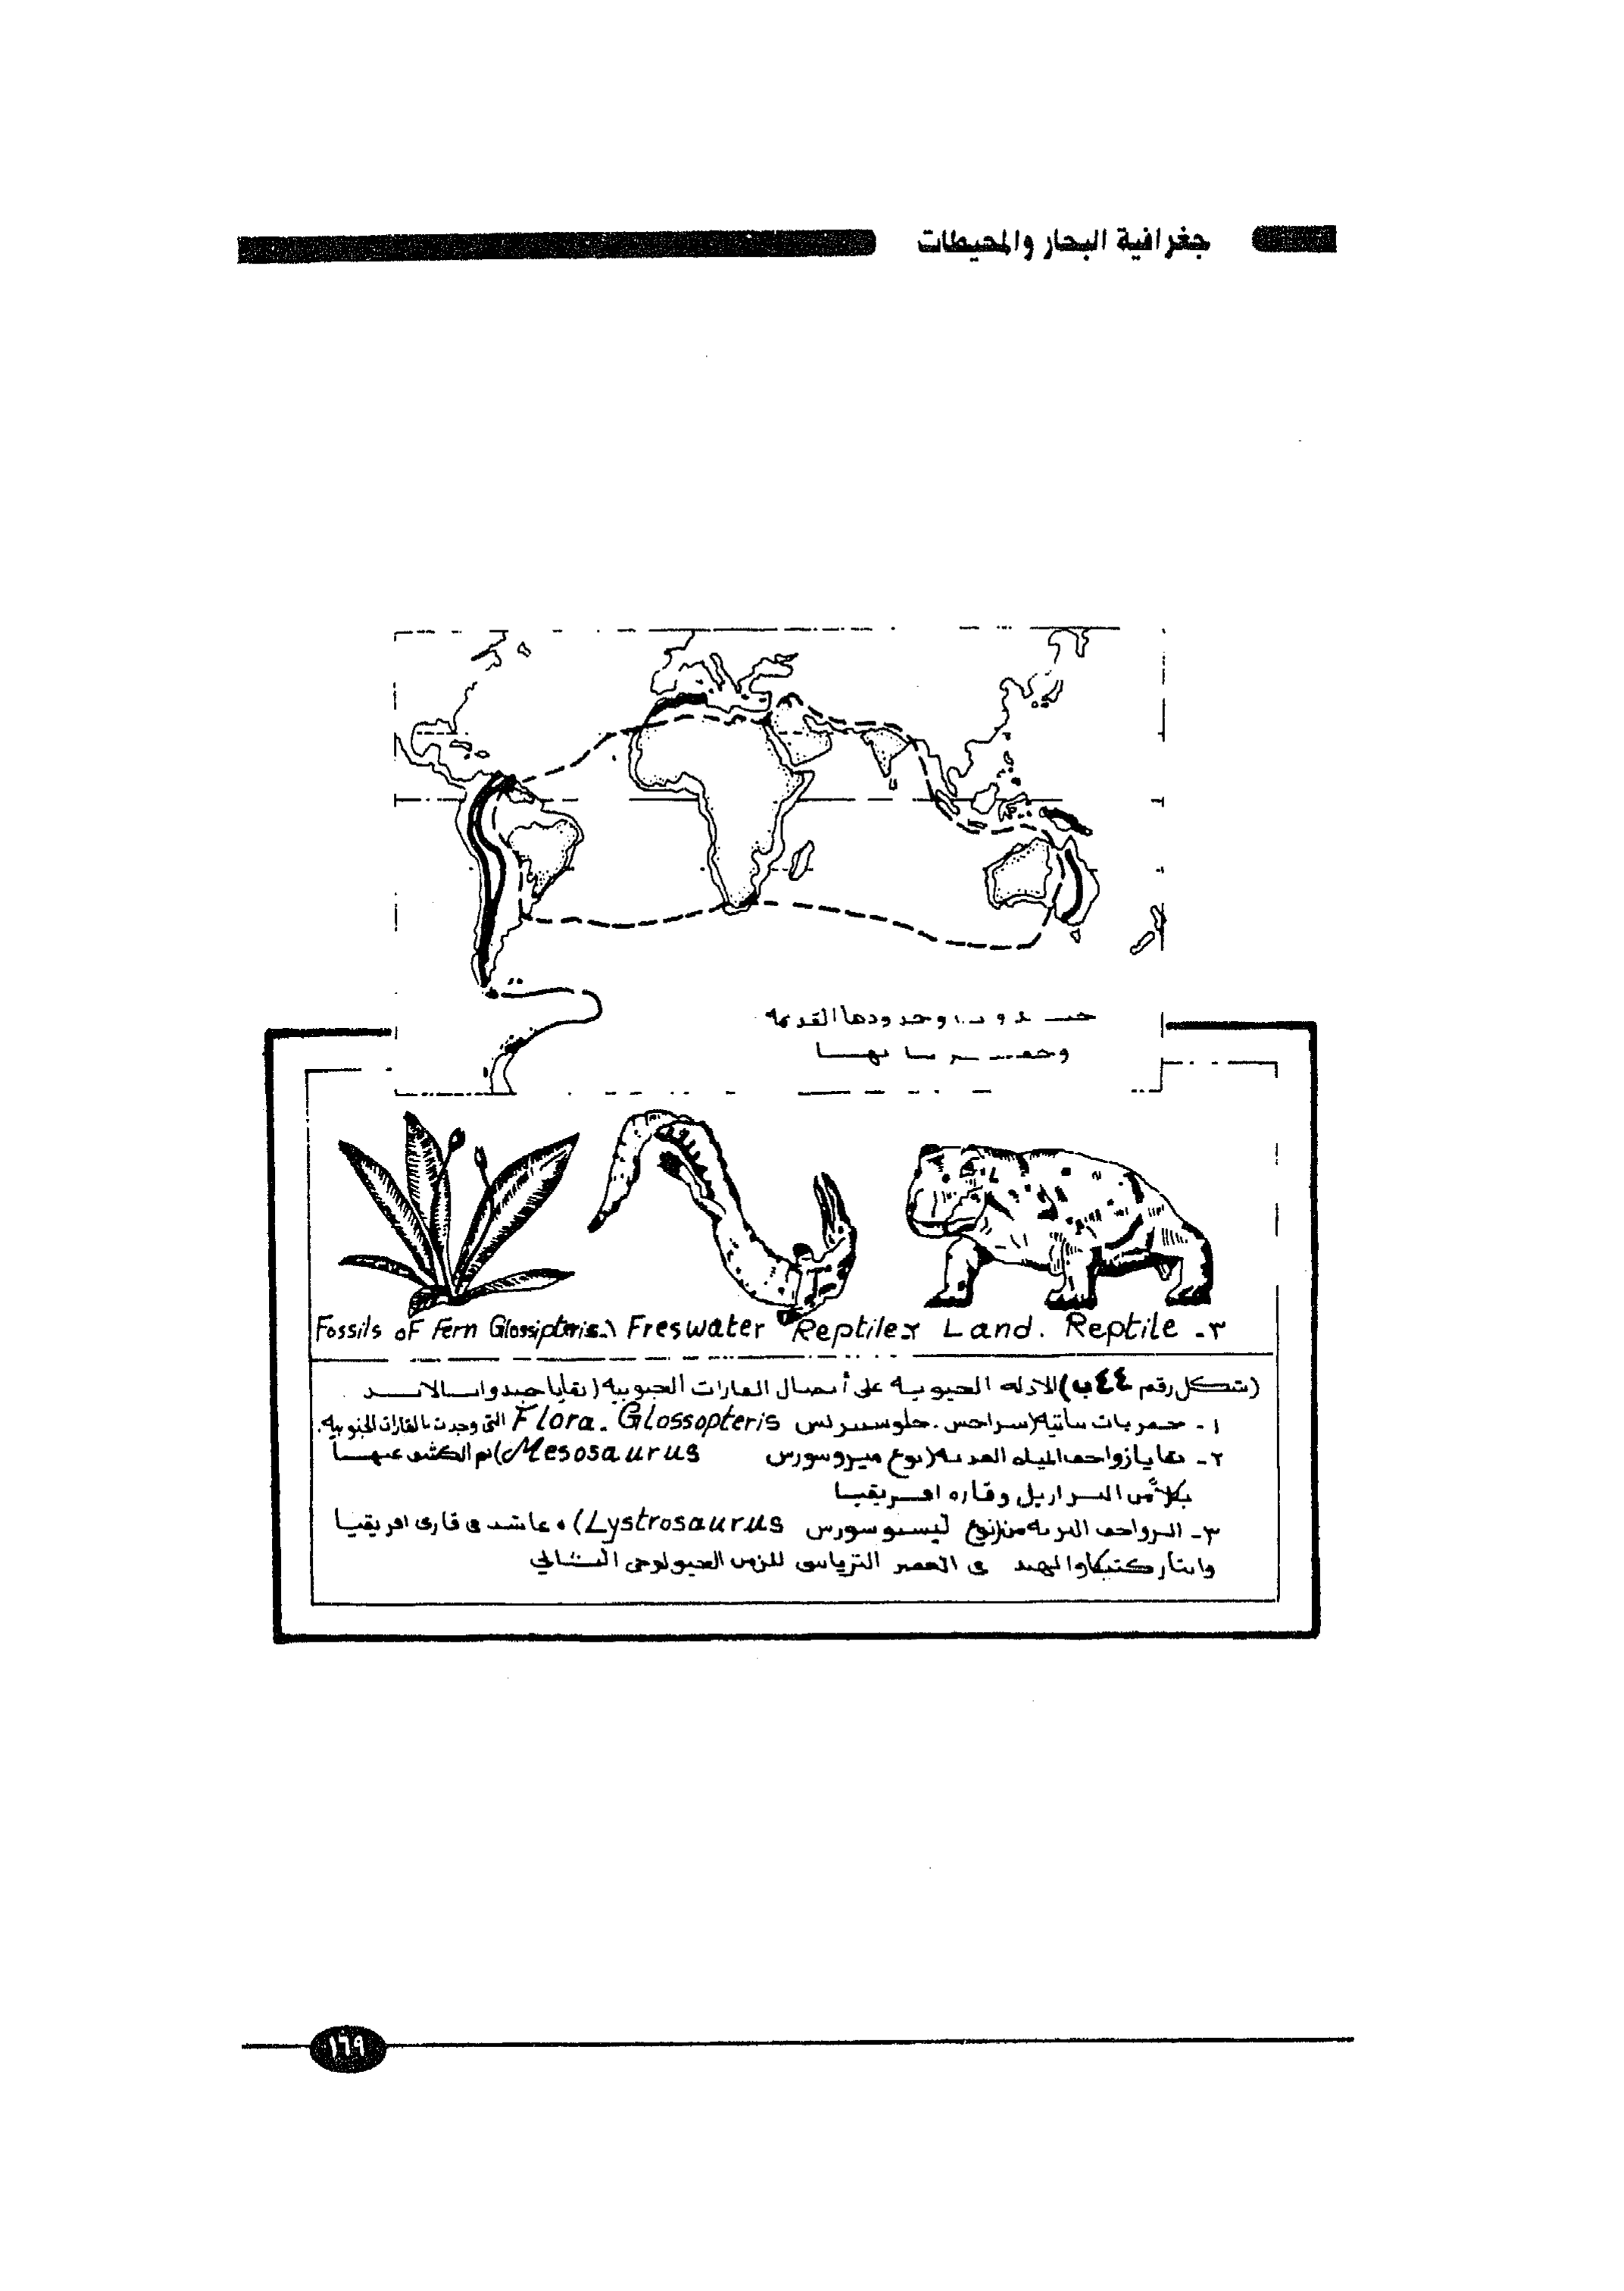 جغرافية البحار والمحيطات
وحدودها القديمة
Fossils of Fern Glossipteris ١- Freswater Reptile ٢- Land. Reptile ٣-
(شكل رقم ٤٤ب) الادله الحيويه على أتصال القارات الجنوبيه (بقايا جندوانالاند
١- حفريات نباتيه (سراخس. جلوسبترس Flora. Glossopteris التى وجدت بالقارات الجنوبيه.
٢- بقايا زواحف المياه العذبه (نوع ميزوسورس Mesosaurus) تم الكشف عنهــا
بكلاً من البرازيل وقاره افريقيا
٣- الزواحف البريه من (نوع ليستوسورس Lystrosaurus) عاشت فى قارى افريقيا
وانتاركتيكا والهند فى العصر الترياسى للزمن الجيولوجى الثانى
١٦٩